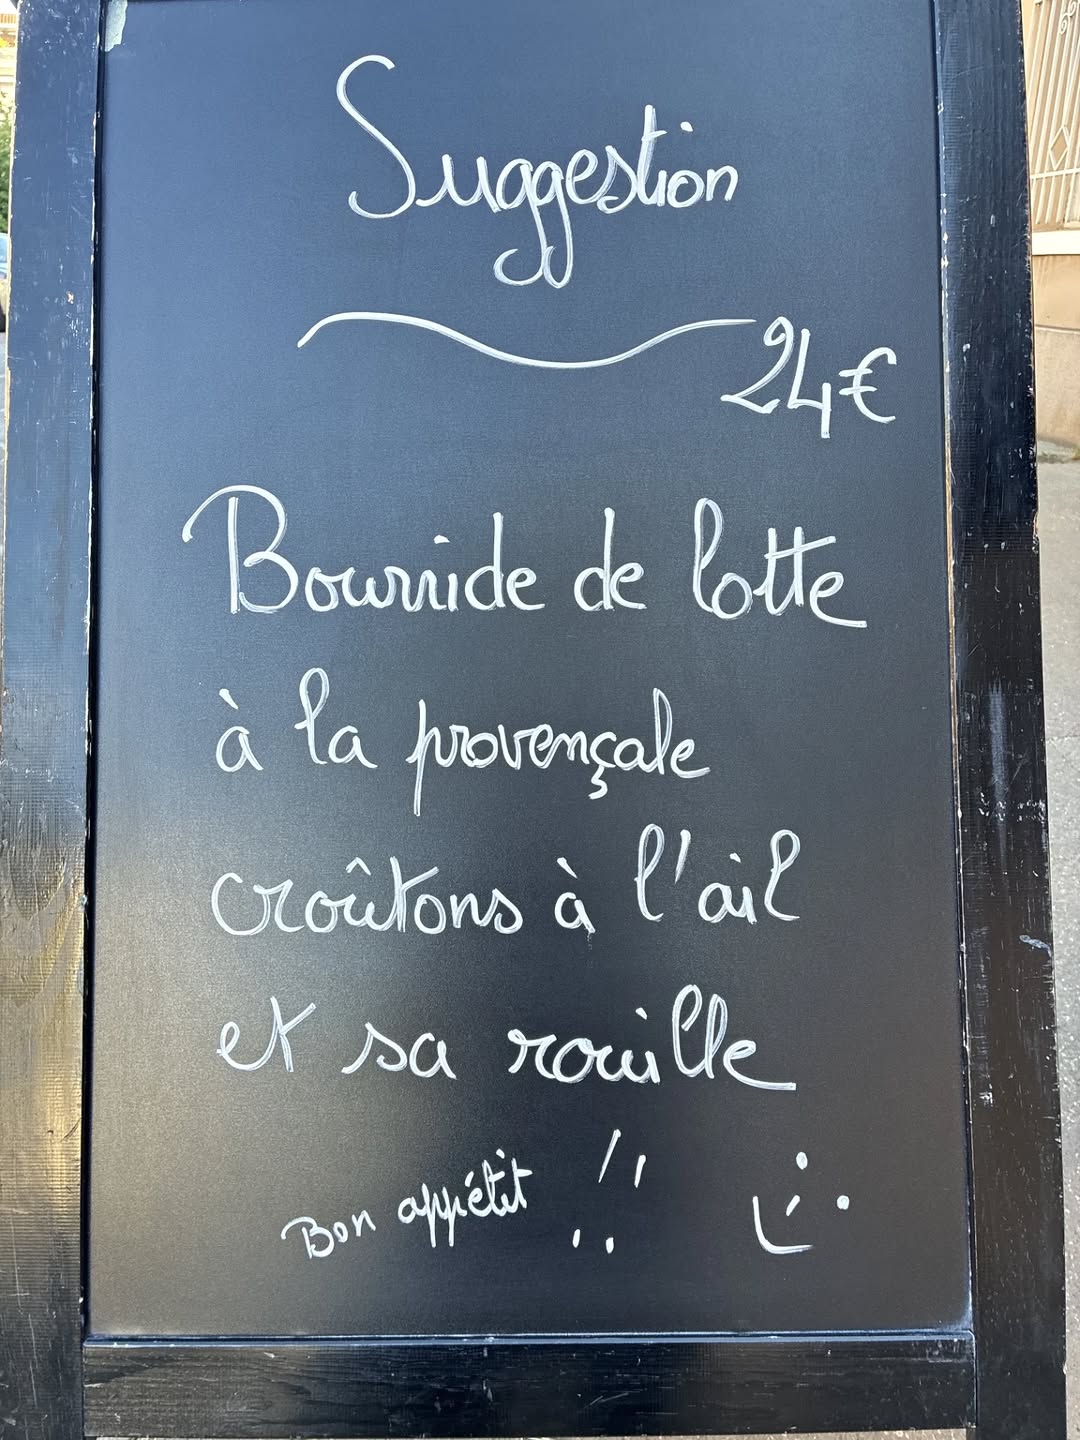 Suggestion
24€
Bourride de lotte
à la provençale
croûtons à l'ail
et sa rouille
Bon appétit !!